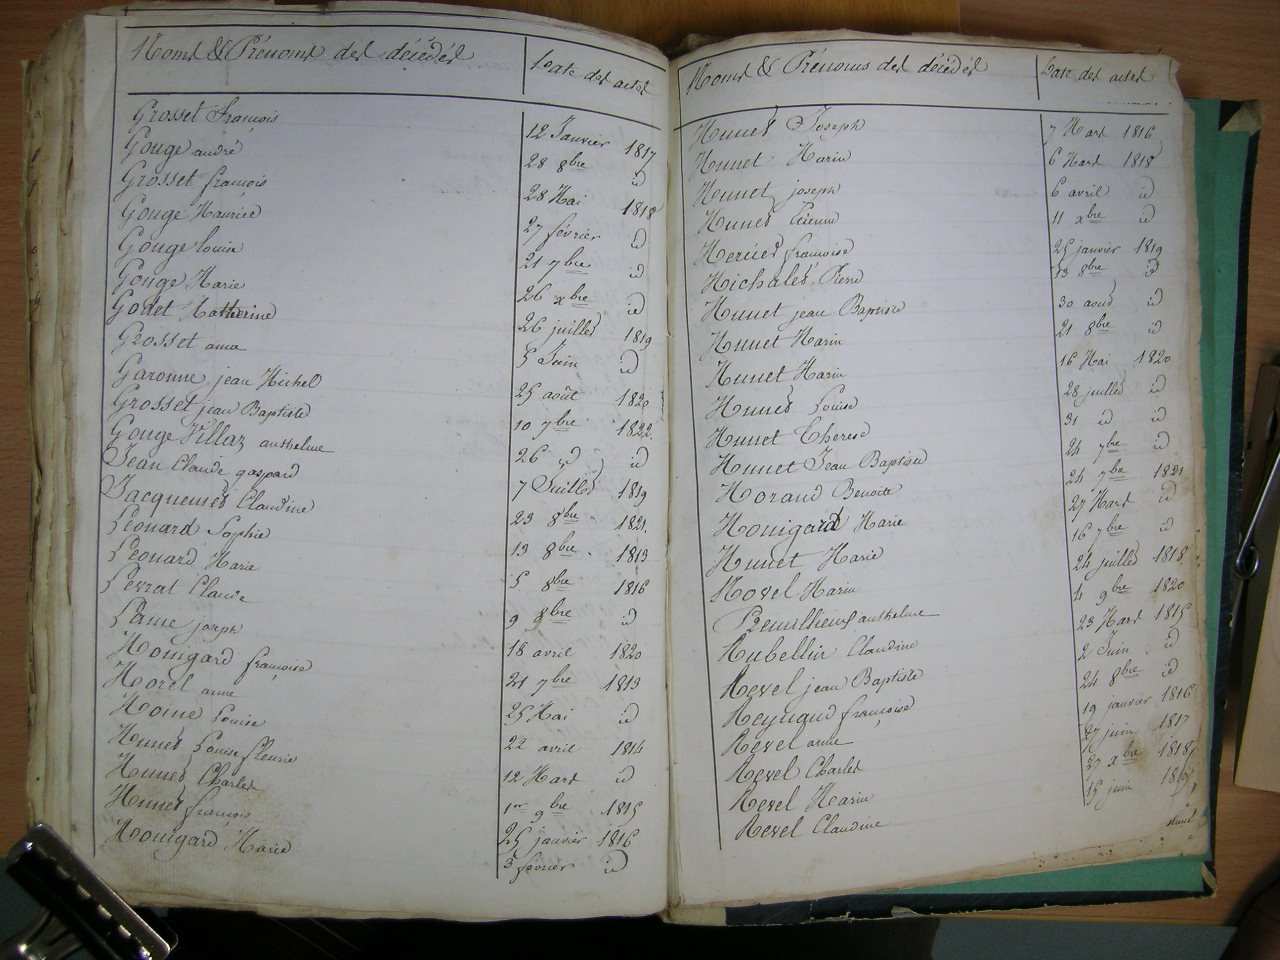 Noms & Prénoms des décédés Date des actes
Grosset françois 12 Janvier 1817
Gouge andré 28 8bre id
Grosset françois 28 Mai 1818
Gouge Maurice 27 février id
Gouge louise 21 7bre id
Gouge Marie 26 xbre id
Godet Catherine 26 juillet 1819
Grosset anne 5 Juin id
Garonne jean Michel 25 août 1820
Grosset jean Baptiste 10 7bre 1822
Gouge Villaz anthelme 26 id id
Jean Claude gaspard 7 Juillet 1819
Jacquemet Claudine 23 8bre 1821
Léonard Sophie 13 8bre 1813
Léonard Marie 5 8bre 1816
Levrat Claude 9 8bre id
Lame joseph 18 avril 1820
Monigard françoise 21 7bre 1813
Morel anne 25 Mai id
Moine Louise 22 avril 1814
Munet Louise fleurie 12 Mars id
Munet Charles 1er 9bre 1815
Munet françois 25 janvier 1816
Monigard Marie 3 février id
Noms & Prénoms des décédés Date des actes
Munet Joseph 7 Mars 1816
Munet Marin 6 Mars 1818
Munet joseph 6 avril id
Munet Etienne 11 xbre id
Mercier françoise 25 janvier 1819
Michalet Pierre 13 8bre id
Munet jean Baptiste 30 aout id
Munet Marin 21 8bre id
Munet Marin 16 Mai 1820
Munet Louise 28 juillet id
Munet Therese 31 id id
Munet Jean Baptiste 24 7bre id
Morand Benoite 24 7bre 1821
Monigard Marie 27 Mars id
Munet Marie 16 7bre id
Novel Marin 24 juillet 1818
anthelme 4 9bre 1820
Rubellin Claudine 23 Mars 1815
Revel jean Baptiste 2 Juin id
Reynaud françoise 24 8bre id
Revel anne 19 janvier 1816
Revel Charles 27 juin 1817
Revel Marin 27 xbre 1818
Revel Claudine 15 juin